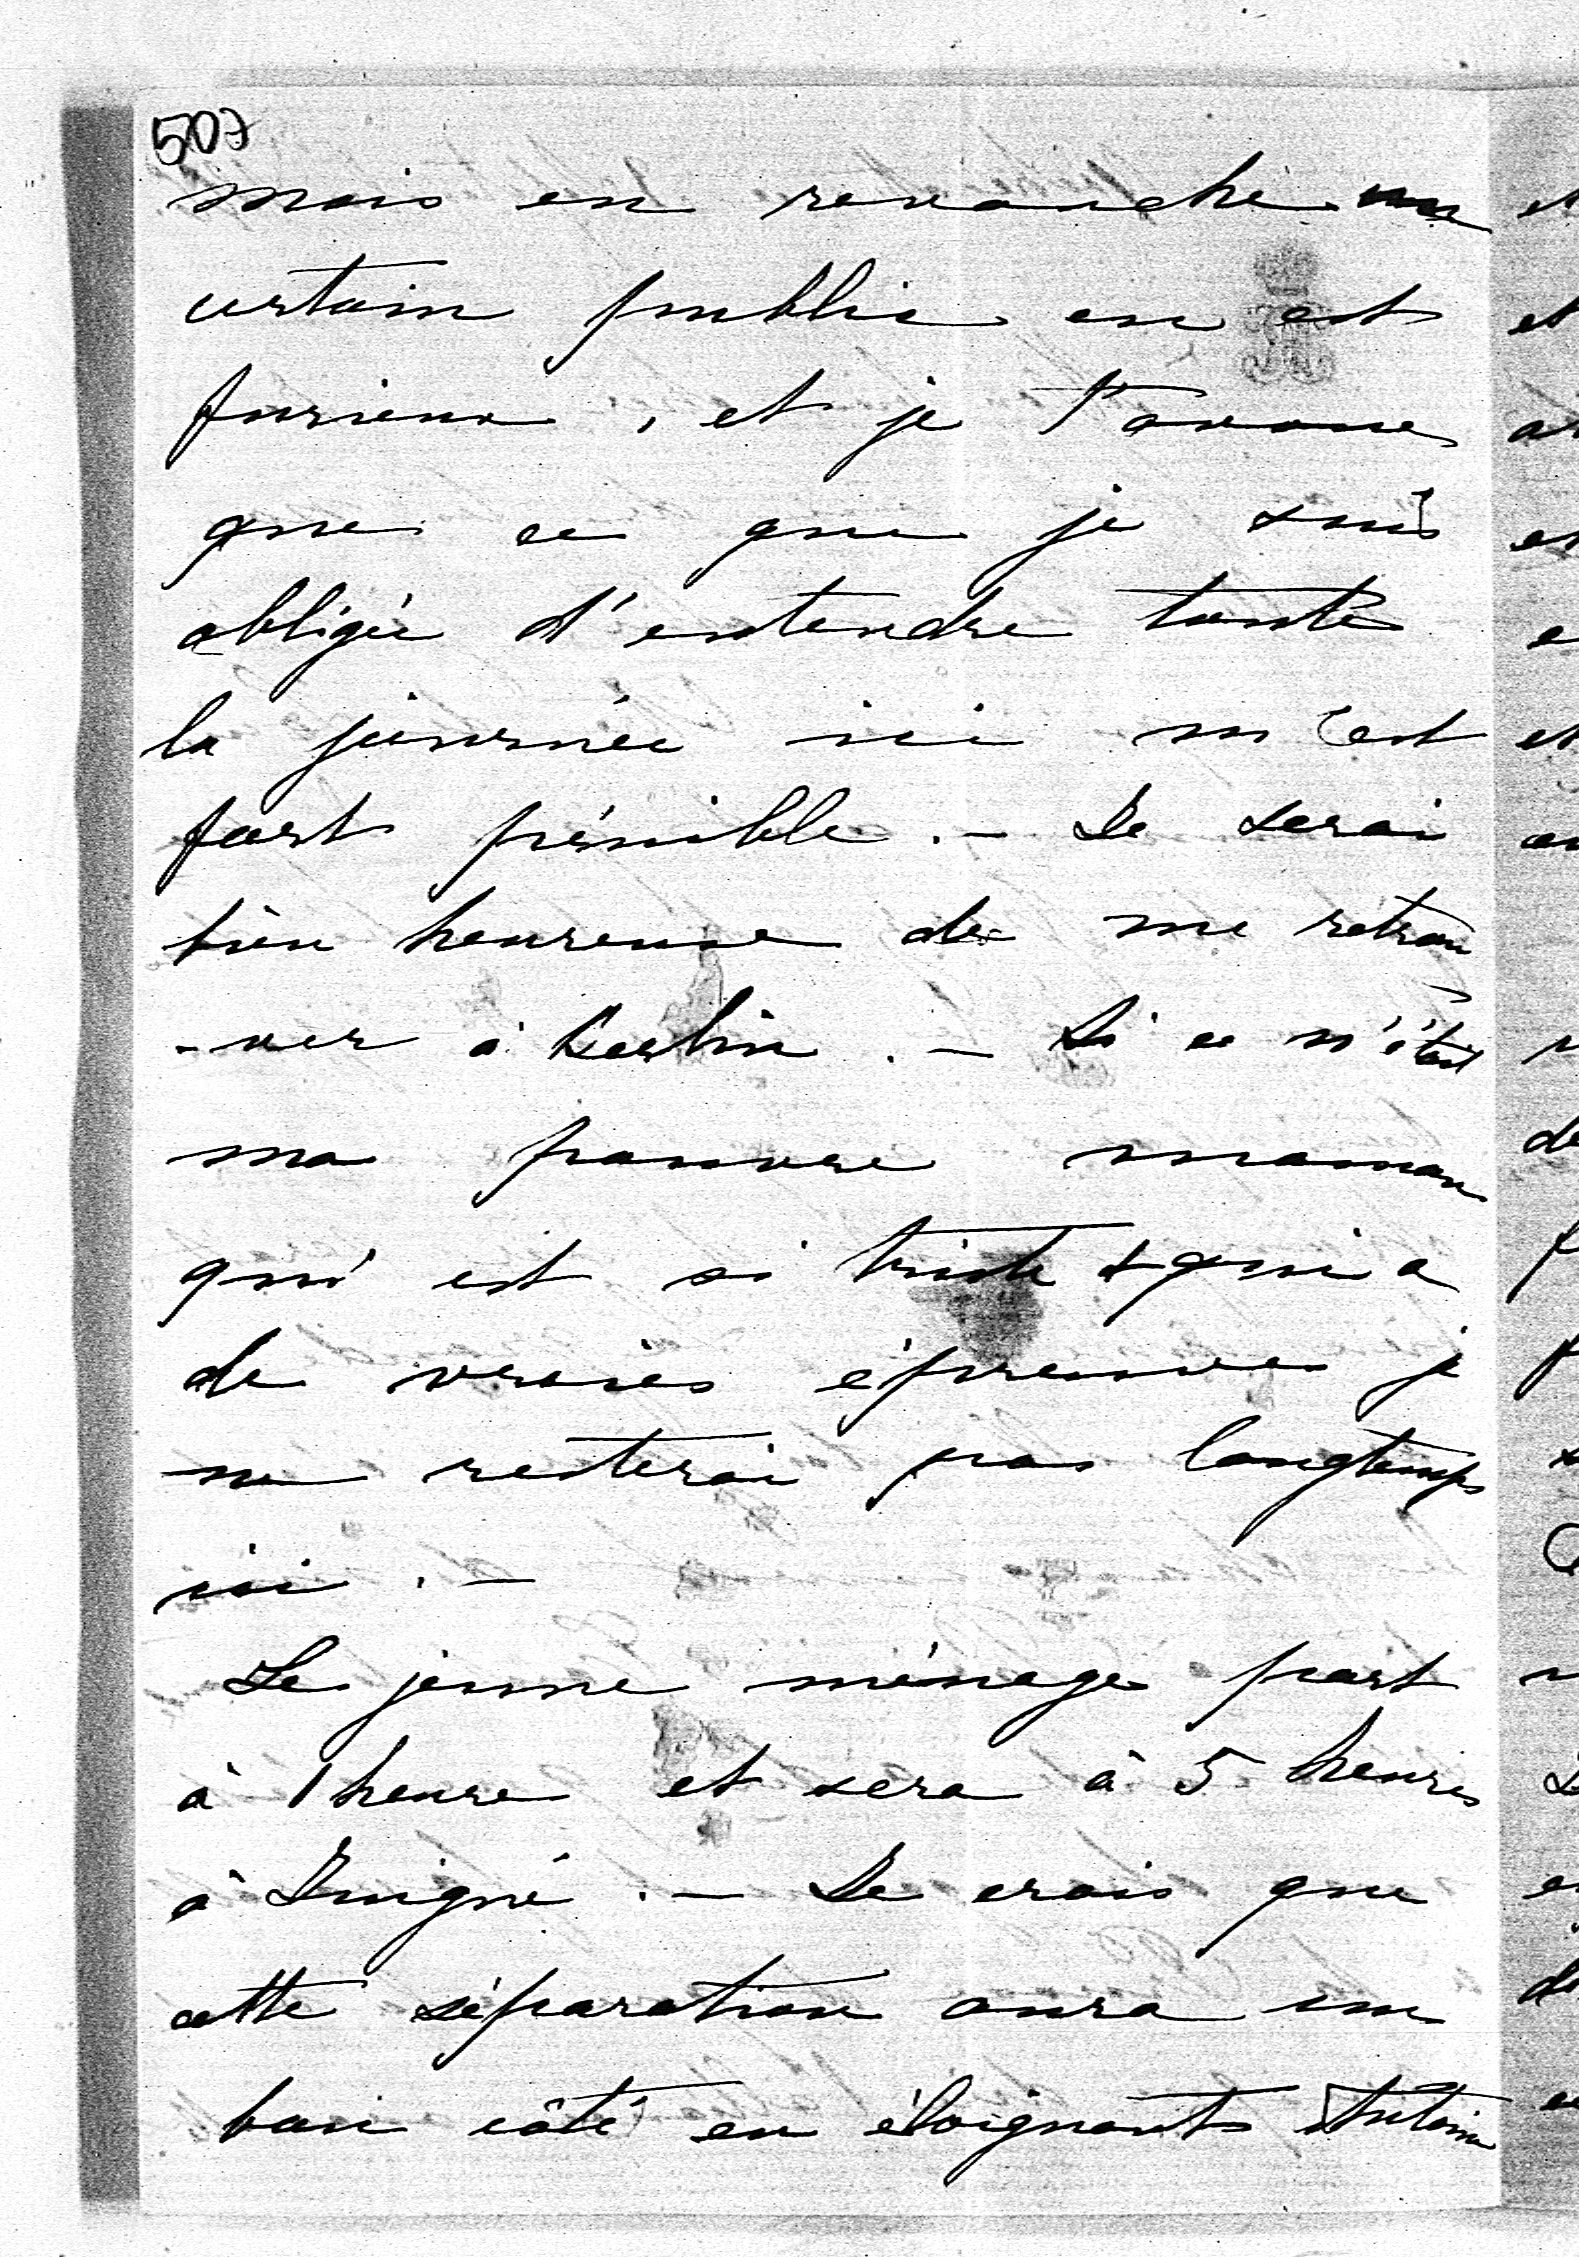 507
mais en revanche un
certain public en est
furieux, et je t'avoue
que ce que je suis
obligée d'entendre toute
la journée ici m'est
fort pénible. — Je serai
bien heureuse de me retrou
-ver à Berlin. — Si ce n'était
ma pauvre maman
qui est si triste & qui a
de vraies épreuves je
ne resterai pas longtemps
ici. —
Le jeune ménage part
à 1 heure et sera à 5 heures
à . — Je crois que
cette séparation aura un
bon côté en éloignant Antoine